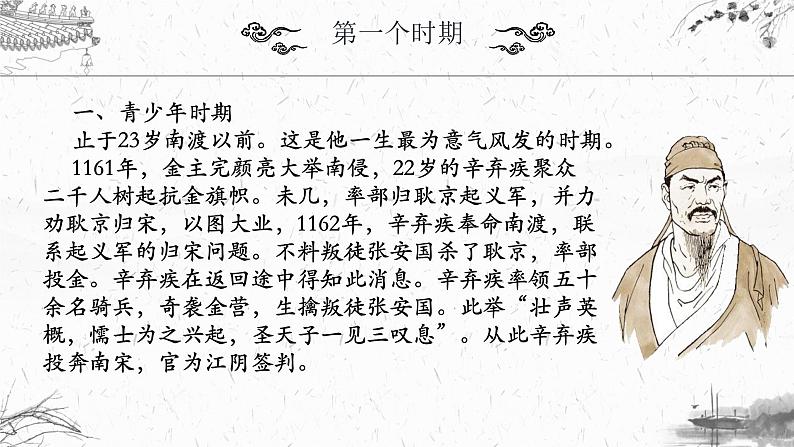 第一个时期
一、青少年时期
止于23岁南渡以前。这是他一生最为意气风发的时期。
1161年，金主完颜亮大举南侵，22岁的辛弃疾聚众
二千人树起抗金旗帜。未几，率部归耿京起义军，并力
劝耿京归宋，以图大业，1162年，辛弃疾奉命南渡，联
系起义军的归宋问题。不料叛徒张安国杀了耿京，率部
投金。辛弃疾在返回途中得知此消息。辛弃疾率领五十
余名骑兵，奇袭金营，生擒叛徒张安国。此举“壮声英
概，懦士为之兴起，圣天子一见三叹息”。从此辛弃疾
投奔南宋，官为江阴签判。